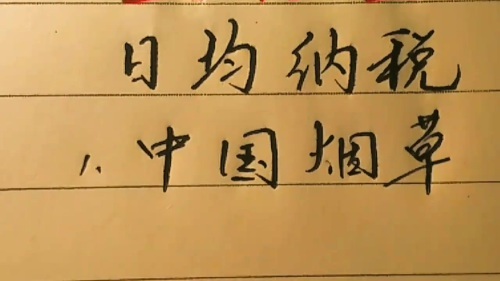 日均纳税
1.中国烟草